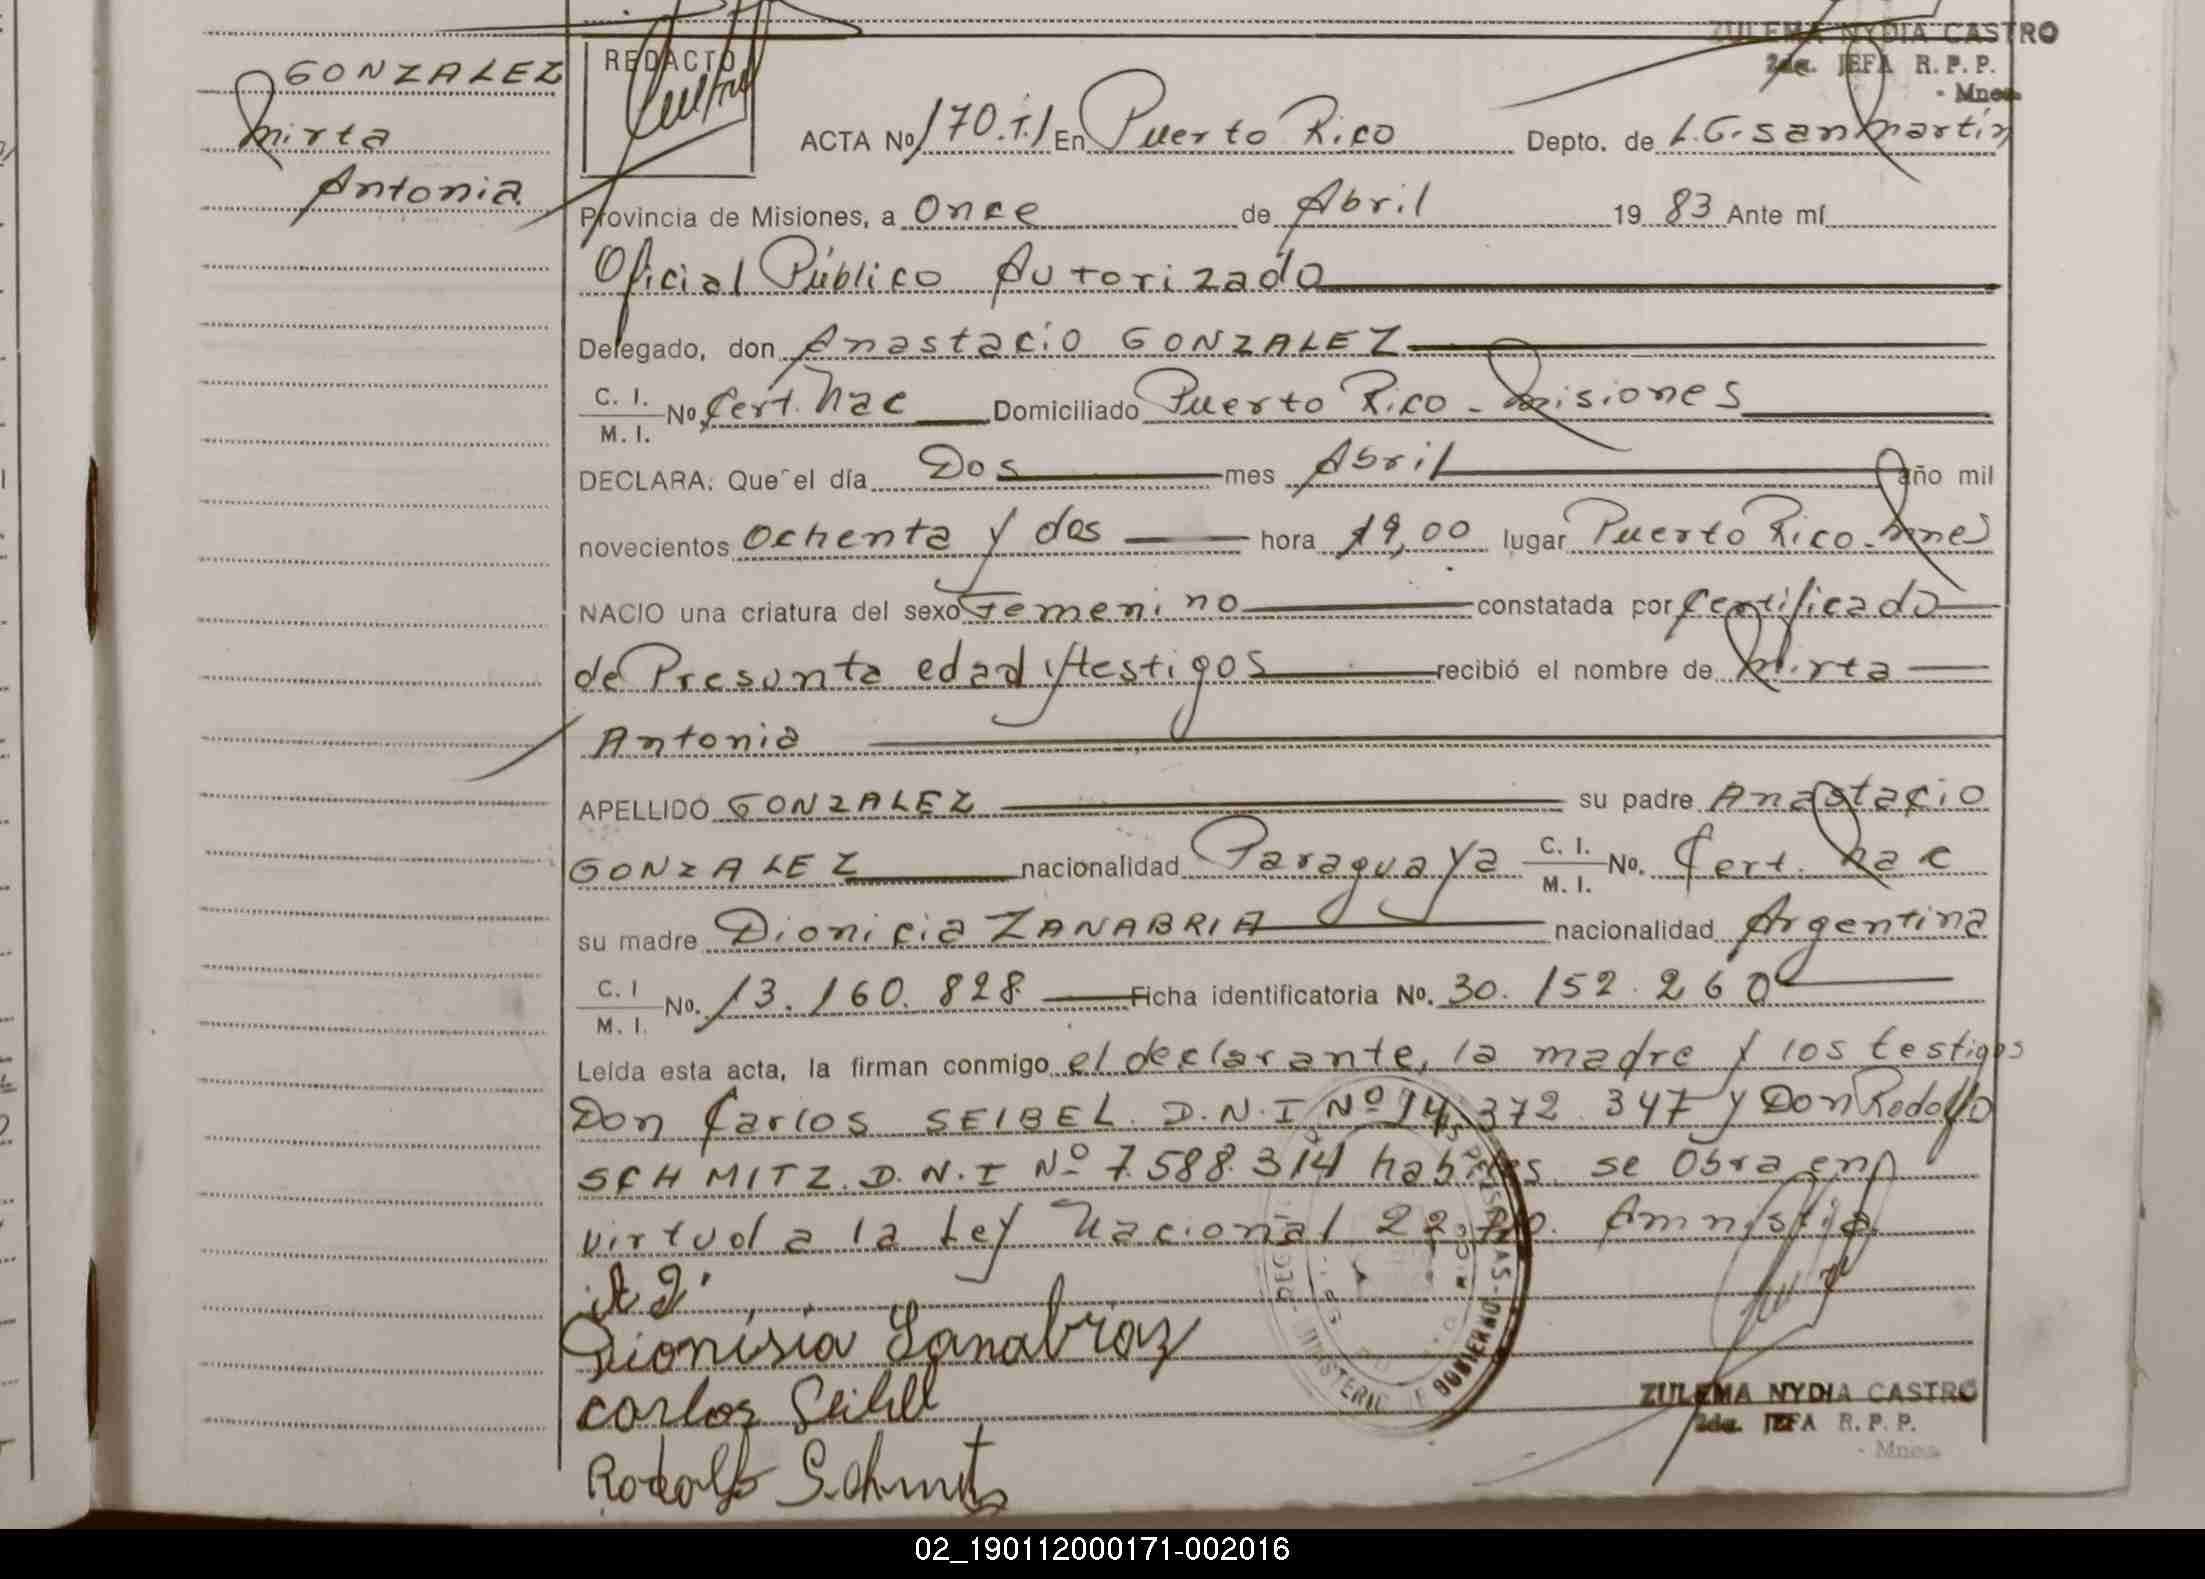 ZULEMA NYDIA CASTRO
2da. JEFA R. P. P.
- Mnes.
GONZALEZ
Mirta
Antonia
REDACTO
ACTA Nº 170.T.I En Puerto Rico Depto. de L.G. San Martín
Provincia de Misiones, a Once de Abril 1983 Ante mí
Oficial Público Autorizado
Delegado, don Anastacio GONZALEZ
C. I. / M. I. No. Cert. Nac Domiciliado Puerto Rico - Misiones
DECLARA: Que el día Dos mes Abril año mil
novecientos Ochenta y dos hora 19,00 lugar Puerto Rico - Mnes
NACIO una criatura del sexo Femenino constatada por Certificado
de Presunta edad y testigos recibió el nombre de Mirta
Antonia
APELLIDO GONZALEZ su padre Anastacio
GONZALEZ nacionalidad Paraguaya C. I. / M. I. No. Cert. Nac
su madre Dionicia ZANABRIA nacionalidad Argentina
C. I / M. I. No. 13.160.828 Ficha identificatoria No. 30.152.260
Leída esta acta, la firman conmigo el declarante, la madre y los testigos
Don Carlos SEIBEL. D.N.I Nº 14.372.347 y Don Rodolfo
SCHMITZ. D.N.I Nº 7.588.314 habiles. se Obra en
virtud a la Ley Nacional Amnistia
Dionisia Sanabraz
Carlos Seibel
Rodolfo Schmitz
MINISTERIO DE GOBIERNO
ZULEMA NYDIA CASTRO
2da. JEFA R. P. P.
- Mnes.
02_190112000171-002016